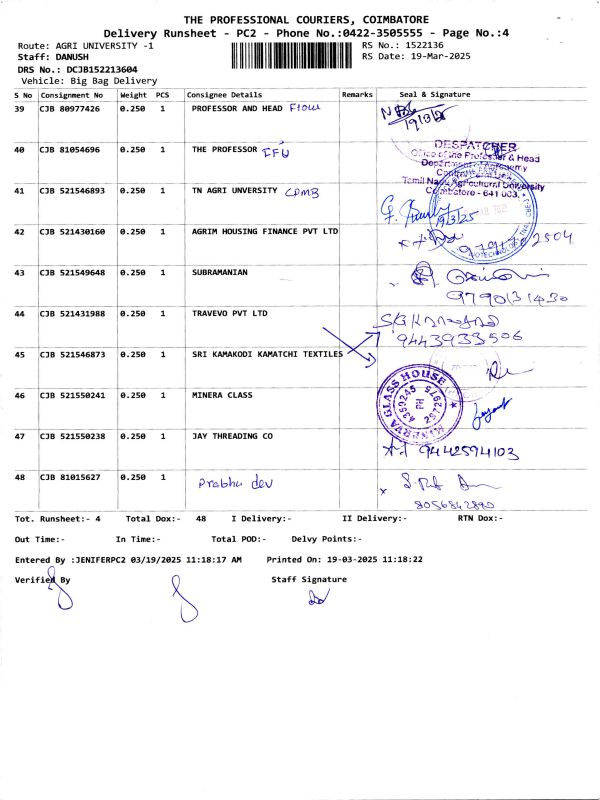 THE PROFESSIONAL COURIERS, COIMBATORE
Delivery Runsheet - PC2 - Phone No.:0422-3505555 - Page No.:4
Route: AGRI UNIVERSITY -1 RS No.: 1522136
Staff: DANUSH RS Date: 19-Mar-2025
DRS No.: DCJB152213604
Vehicle: Big Bag Delivery
S No Consignment No Weight PCS Consignee Details Remarks Seal & Signature
39 CJB 80977426 0.250 1 PROFESSOR AND HEAD
19/3/25
40 CJB 81054696 0.250 1 THE PROFESSOR
DESPATCHER
Office of the Professor & Head
Department of Agronomy
Tamil Nadu Agricultural University
Coimbatore - 641 003.
41 CJB 521546893 0.250 1 TN AGRI UNVERSITY CPMB
19/3/25
42 CJB 521430160 0.250 1 AGRIM HOUSING FINANCE PVT LTD
43 CJB 521549648 0.250 1 SUBRAMANIAN
9790131430
44 CJB 521431988 0.250 1 TRAVEVO PVT LTD
9443933506
45 CJB 521546873 0.250 1 SRI KAMAKODI KAMATCHI TEXTILES
46 CJB 521550241 0.250 1 MINERA CLASS
MINERVA GLASS HOUSE
47 CJB 521550238 0.250 1 JAY THREADING CO
9442594103
48 CJB 81015627 0.250 1 Prabhu dev
8056842890
Tot. Runsheet:- 4 Total Dox:- 48 I Delivery:- II Delivery:- RTN Dox:-
Out Time:- In Time:- Total POD:- Delvy Points:-
Entered By :JENIFERPC2 03/19/2025 11:18:17 AM Printed On: 19-03-2025 11:18:22
Verified By Staff Signature